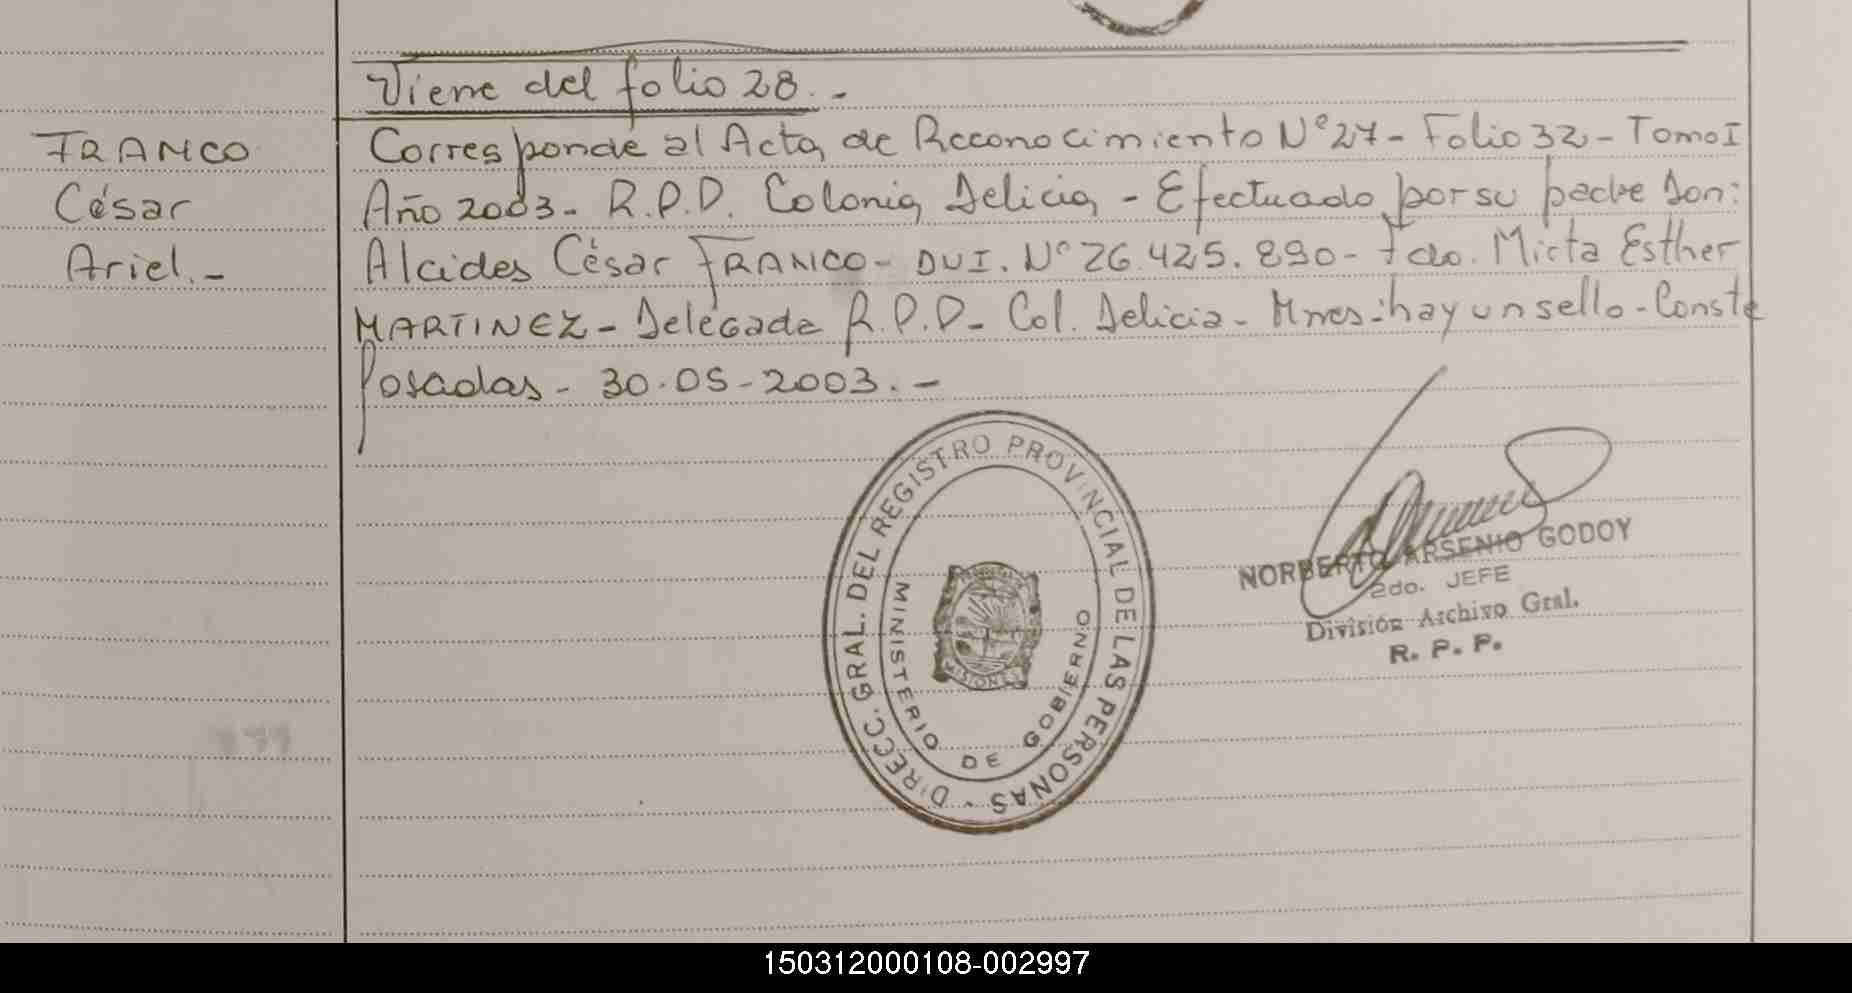 Viene del folio 28. -
FRANCO
César
Ariel. -
Corresponde al Acta de Reconocimiento Nº 27 - Folio 32 - Tomo I
Año 2003 - R.P.D. Colonia Delicia - Efectuado por su padre Don:
Alcides César FRANCO - DUI. Nº 26.425.890 - Fdo. Mirta Esther
MARTINEZ - Delegada R.P.D - Col. Delicia - Mnes: hay un sello - Conste
Posadas - 30-05-2003. -
DIRECC. GRAL. DEL REGISTRO PROVINCIAL DE LAS PERSONAS -
MINISTERIO DE GOBIERNO
MISIONES
NORBERTO ARSENIO GODOY
2do. JEFE
División Archivo Gral.
R. P. P.
150312000108-002997